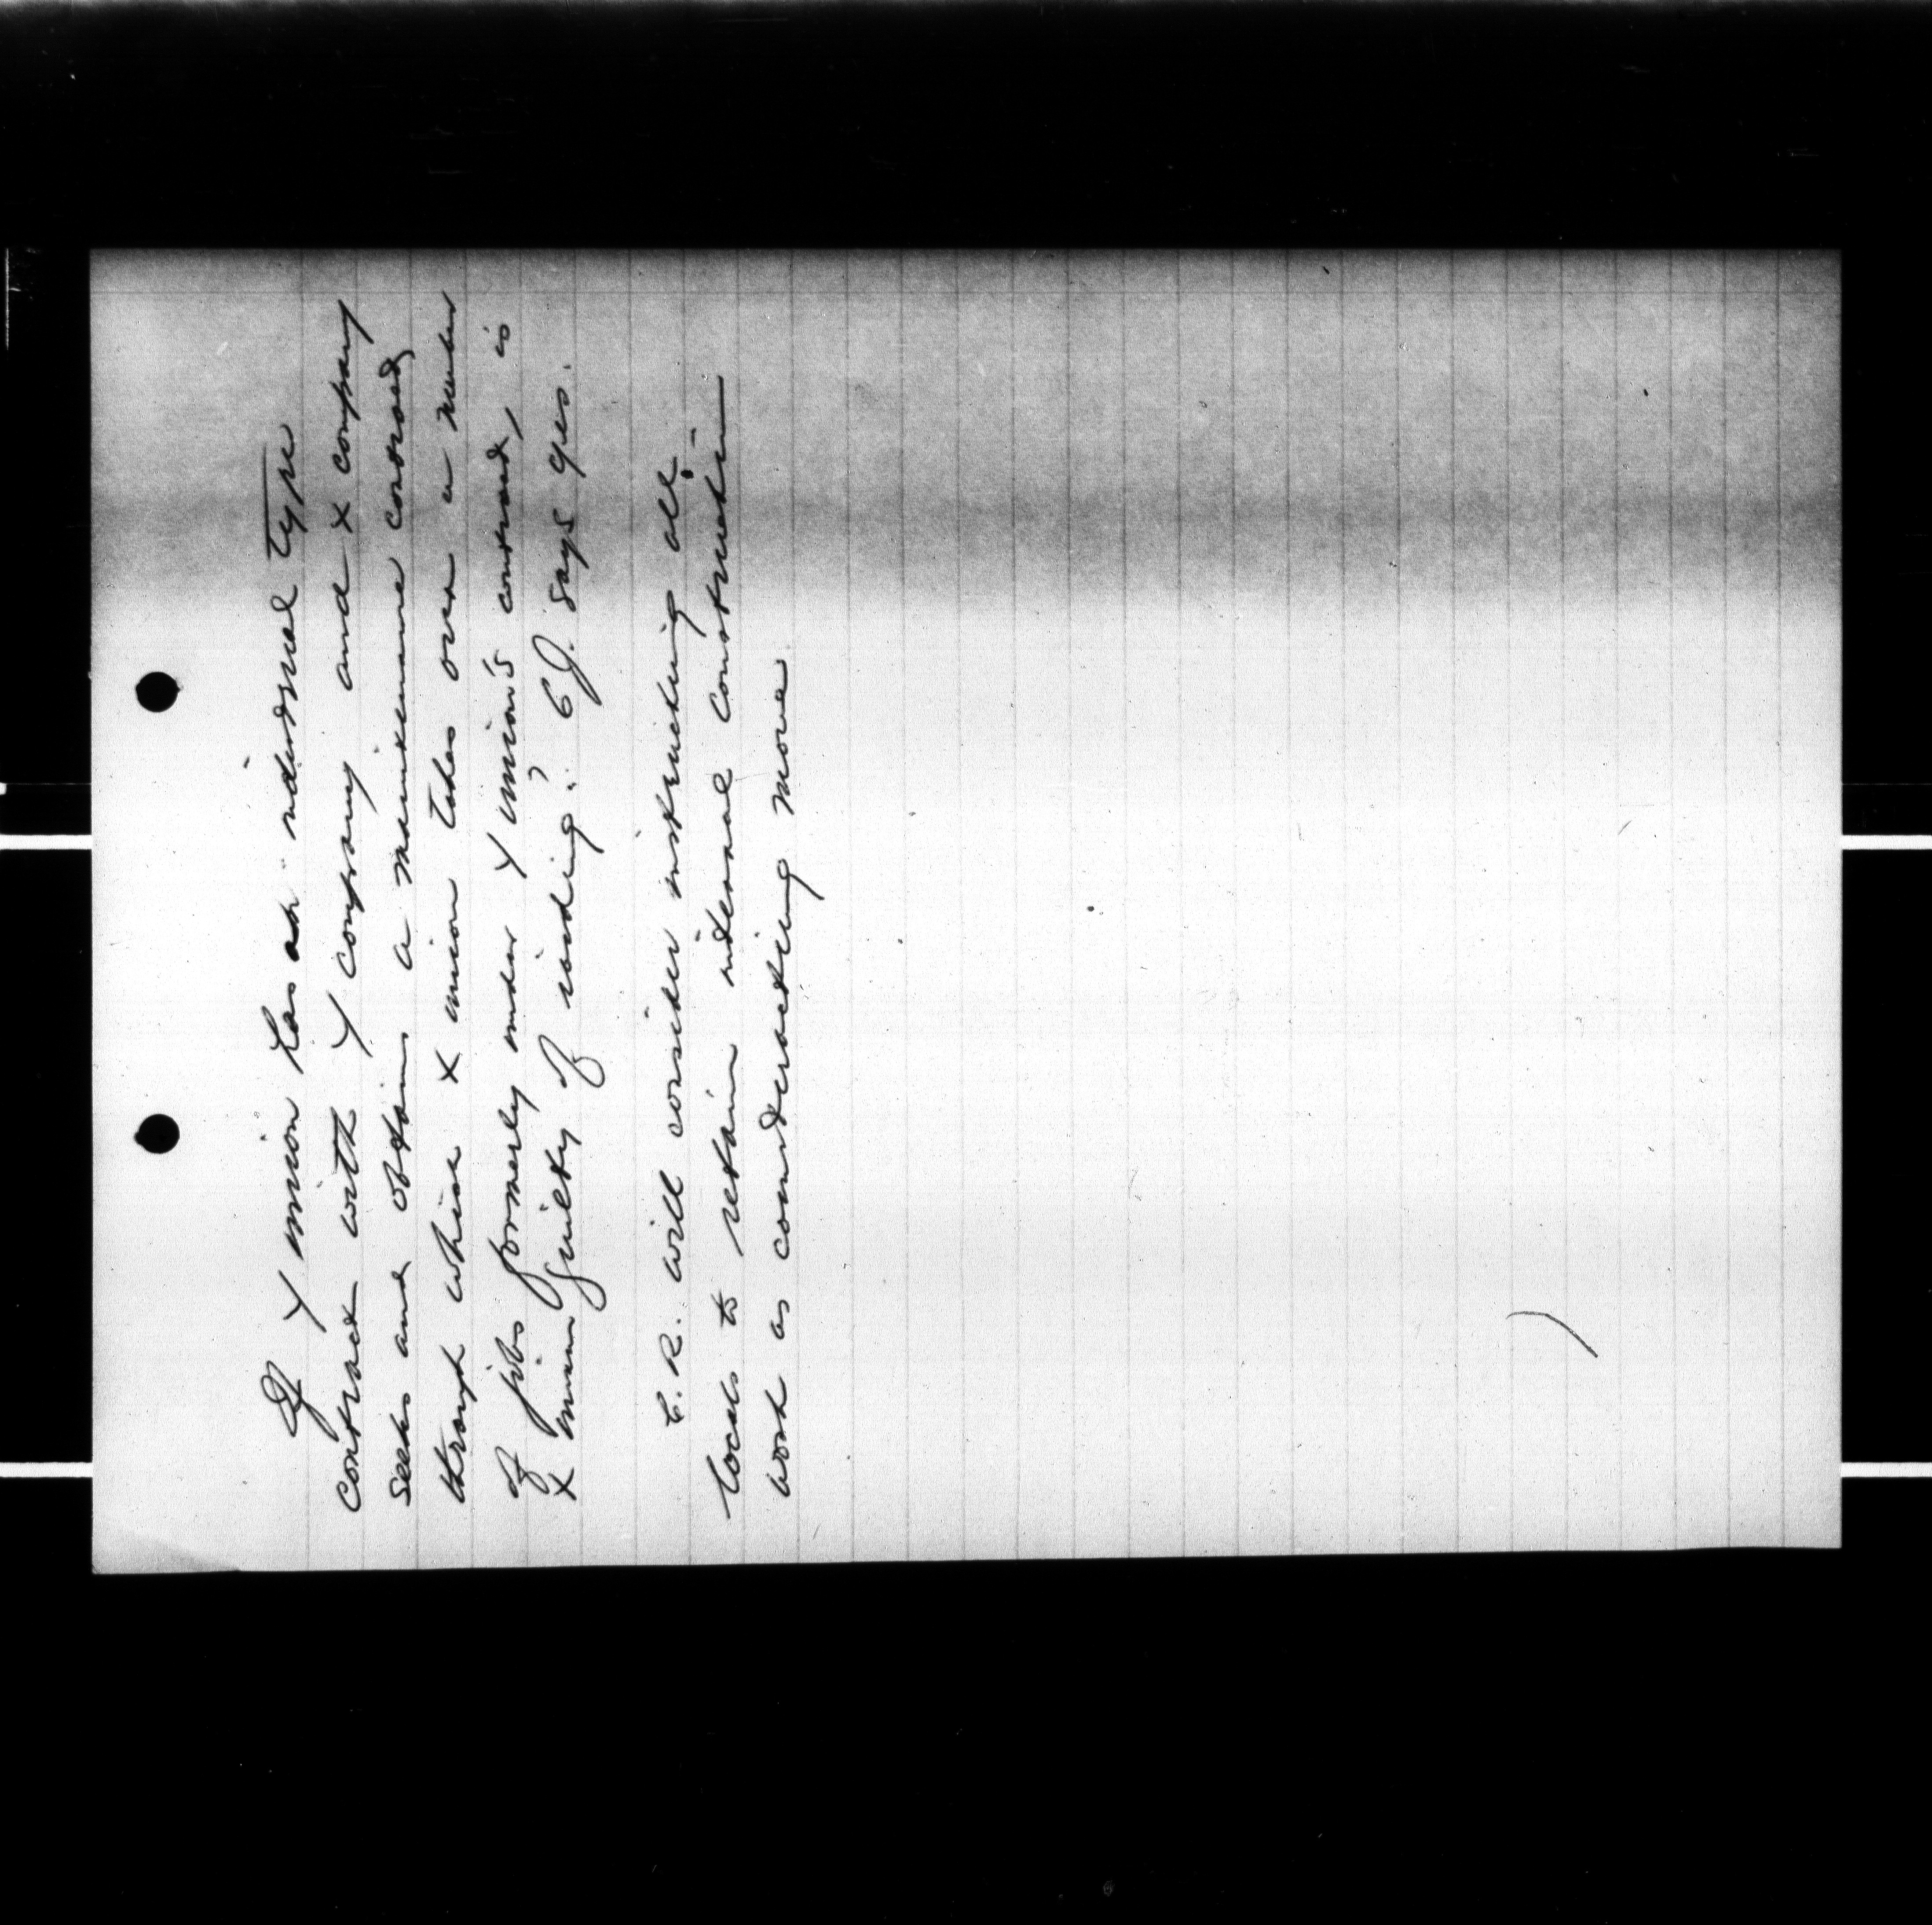 If Y union has an industrial type
contract with Y company and X company
seeks and obtains a maintenance contract,
through which X union takes over a number
of jobs formerly under Y union's contract, is
X union guilty of raiding? CJ. says yes.
C.R. will consider instructing all
locals to retain internal construction
work as counteracting move